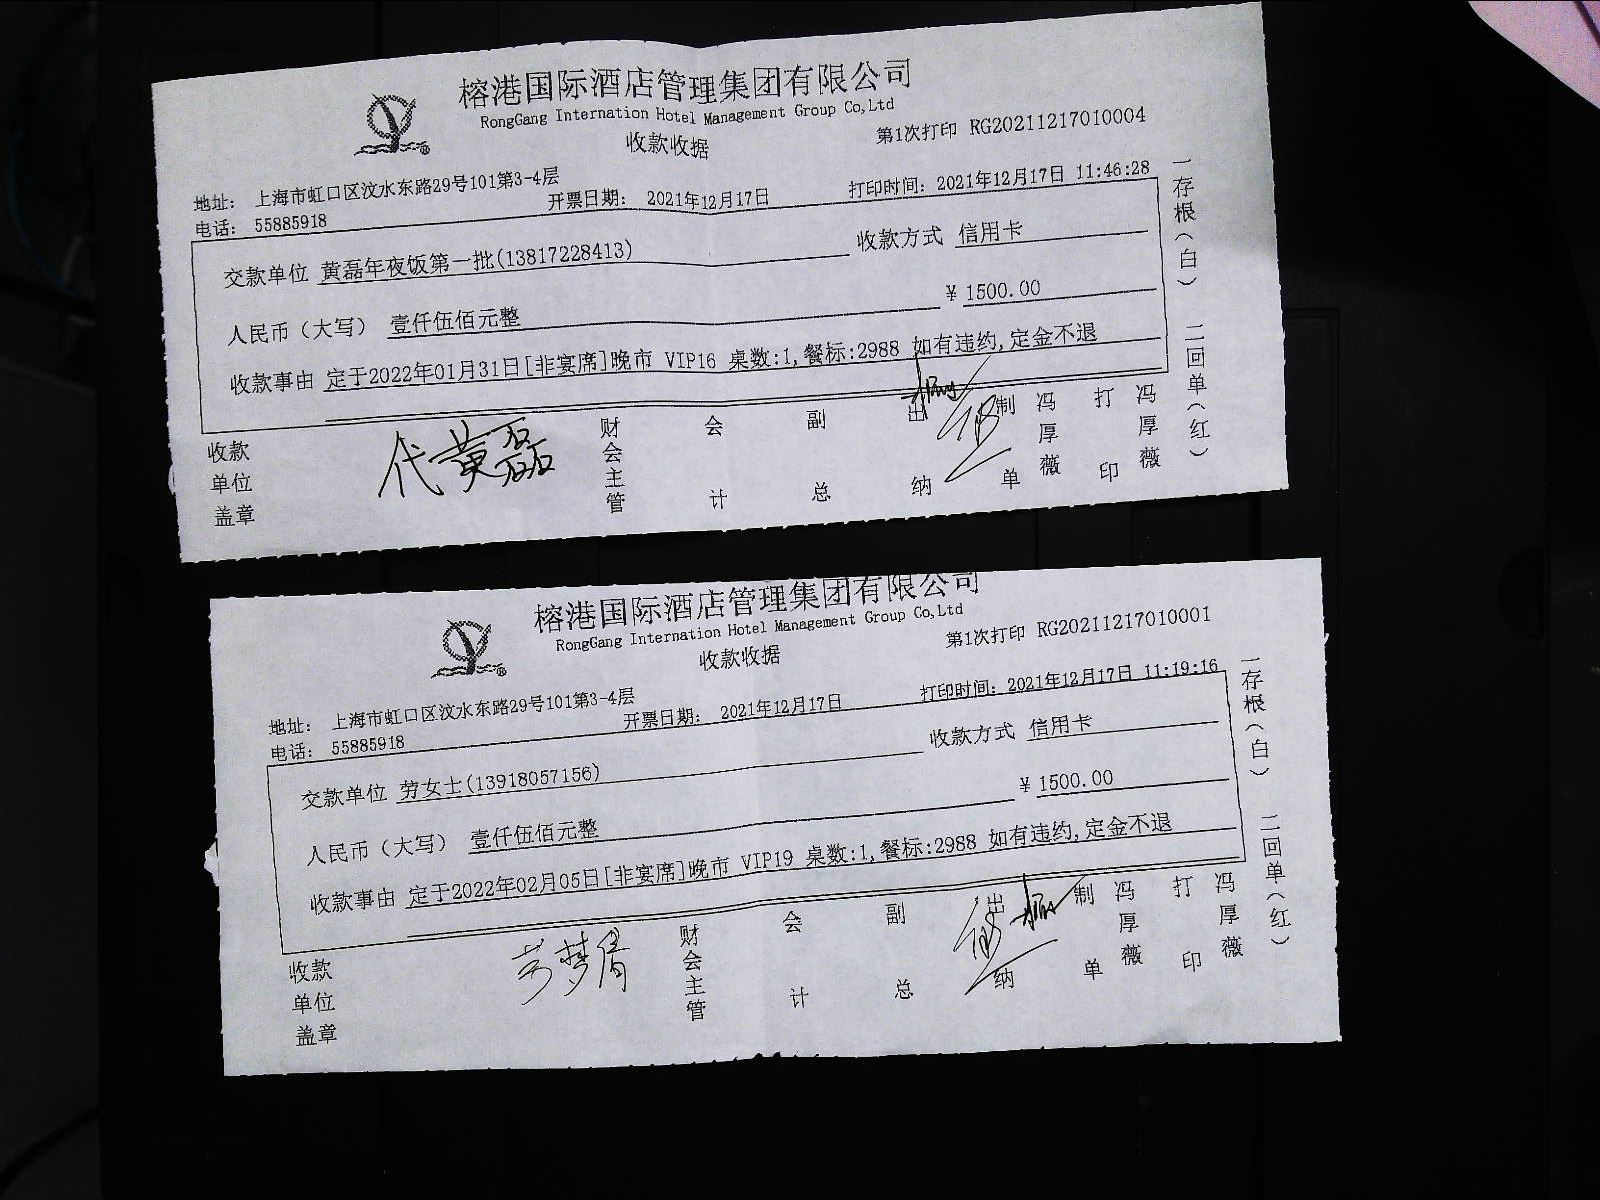 榕港国际酒店管理集团有限公司
RongGang Internation Hotel Management Group Co,Ltd
收款收据
第1次打印 RG20211217010004
地址： 上海市虹口区汶水东路29号101第3-4层
电话： 55885918
开票日期： 2021年12月17日
打印时间：2021年12月17日 11:46:28
交款单位 黄磊年夜饭第一批(13817228413)
收款方式 信用卡
人民币（大写） 壹仟伍佰元整
¥ 1500.00
收款事由 定于2022年01月31日[非宴席]晚市 VIP16 桌数:1,餐标:2988 如有违约,定金不退
收款单位盖章
代黄磊
财会主管
会计
副总
出纳
制单
冯厚薇
打印
冯厚薇
一存根（白） 二回单（红）
榕港国际酒店管理集团有限公司
RongGang Internation Hotel Management Group Co,Ltd
收款收据
第1次打印 RG20211217010001
地址： 上海市虹口区汶水东路29号101第3-4层
电话： 55885918
开票日期： 2021年12月17日
打印时间：2021年12月17日 11:19:16
交款单位 劳女士(13918057156)
收款方式 信用卡
人民币（大写） 壹仟伍佰元整
¥ 1500.00
收款事由 定于2022年02月05日[非宴席]晚市 VIP19 桌数:1,餐标:2988 如有违约,定金不退
收款单位盖章
劳梦倩
财会主管
会计
副总
出纳
制单
冯厚薇
打印
冯厚薇
一存根（白） 二回单（红）